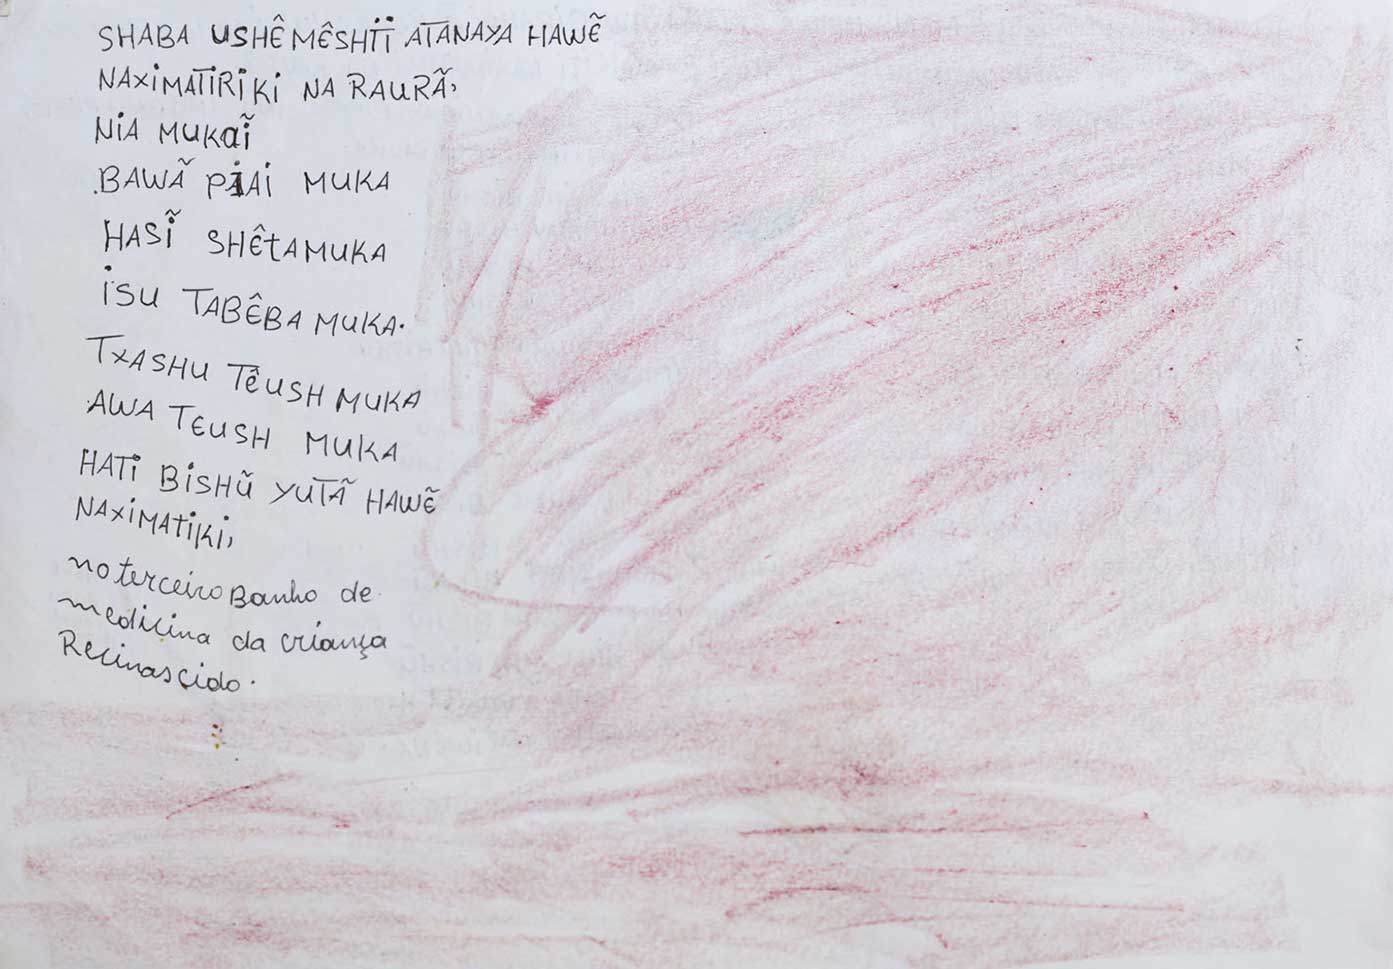 SHABA USHÊ MÊSHTĨ ATANAYA HAWẼ
NAXIMATIRIKI NA RAURÃ,
NIA MUKAĨ
BAWÃ PIAI MUKA
HASĨ SHÊTA MUKA
ISU TABÊBA MUKA.
TXASHU TÊUSH MUKA
AWA TEUSH MUKA
HATI BISHŨ YUTÃ HAWẼ
NAXIMATIKI,
no terceiro Banho de
medicina da criança
Recinascido.